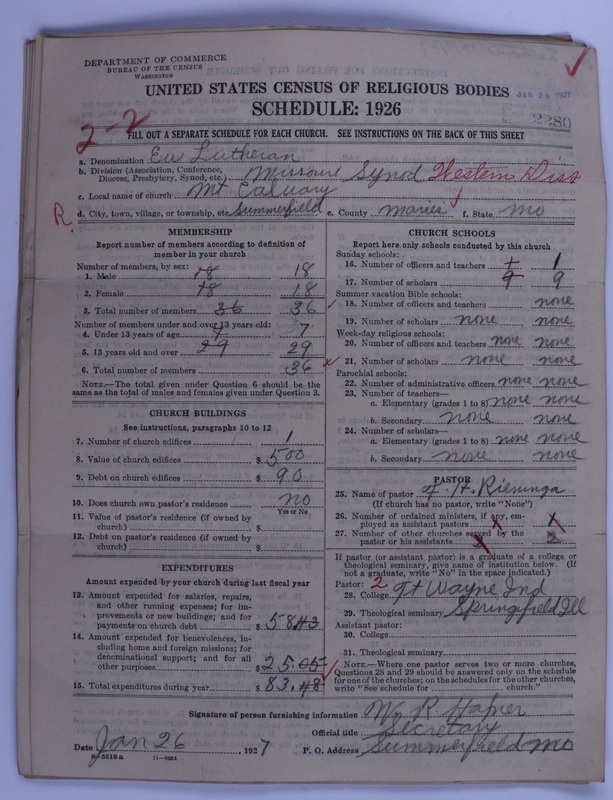 DEPARTMENT OF COMMERCE
BUREAU OF THE CENSUS
WASHINGTON
UNITED STATES CENSUS OF RELIGIOUS BODIES
JAN 29 1927
SCHEDULE: 1926
2280
2-2
FILL OUT A SEPARATE SCHEDULE FOR EACH CHURCH. SEE INSTRUCTIONS ON THE BACK OF THIS SHEET
a. Denomination Ev Lutheran
b. Division (Association, Conference, Diocese, Presbytery, Synod, etc.) Missouri Synod Western Dist
c. Local name of church Mt Calvary
R. d. City, town, village, or township, etc. Summerfield e. County Maries f. State Mo
MEMBERSHIP
Report number of members according to definition of
member in your church
Number of members, by sex:
1. Male 18 18
2. Female 18 18
3. Total number of members 36 36
Number of members under and over 13 years old:
4. Under 13 years of age 7 7
5. 13 years old and over 29 29
6. Total number of members 36
NOTE.—The total given under Question 6 should be the
same as the total of males and females given under Question 3.
CHURCH BUILDINGS
See instructions, paragraphs 10 to 12
7. Number of church edifices 1
8. Value of church edifices $ 500
9. Debt on church edifices $ 90
10. Does church own pastor's residence no
Yes or No
11. Value of pastor's residence (if owned by
church) $
12. Debt on pastor's residence (if owned by
church) $
EXPENDITURES
Amount expended by your church during last fiscal year
13. Amount expended for salaries, repairs,
and other running expenses; for im-
provements or new buildings; and for
payments on church debt $ 58.43
14. Amount expended for benevolences, in-
cluding home and foreign missions; for
denominational support; and for all
other purposes $ 25.05
15. Total expenditures during year $ 83.48
CHURCH SCHOOLS
Report here only schools conducted by this church
Sunday schools:
16. Number of officers and teachers 1 1
17. Number of scholars 9 9
Summer vacation Bible schools:
18. Number of officers and teachers none
19. Number of scholars none none
Week-day religious schools:
20. Number of officers and teachers none none
21. Number of scholars none none
Parochial schools:
22. Number of administrative officers none none
23. Number of teachers—
a. Elementary (grades 1 to 8) none none
b. Secondary none none
24. Number of scholars—
a. Elementary (grades 1 to 8) none none
b. Secondary none none
PASTOR
25. Name of pastor F. H. Rieninga
(If church has no pastor, write "None")
26. Number of ordained ministers, if any, em-
ployed as assistant pastors 1 1
27. Number of other churches served by the
pastor or his assistants 2
If pastor (or assistant pastor) is a graduate of a college or
theological seminary, give name of institution below. (If
not a graduate, write "No" in the space indicated.)
Pastor: 2
28. College Ft Wayne Ind
29. Theological seminary Springfield Ill
Assistant pastor:
30. College
31. Theological seminary
NOTE.—Where one pastor serves two or more churches,
Questions 28 and 29 should be answered only on the schedule
for one of the churches; on the schedules for the other churches,
write "See schedule for church."
Signature of person furnishing information Wm R Hafner
Official title Secretary
Date Jan 26, 1927 P. O. Address Summerfield Mo
8-5518a 11-9084